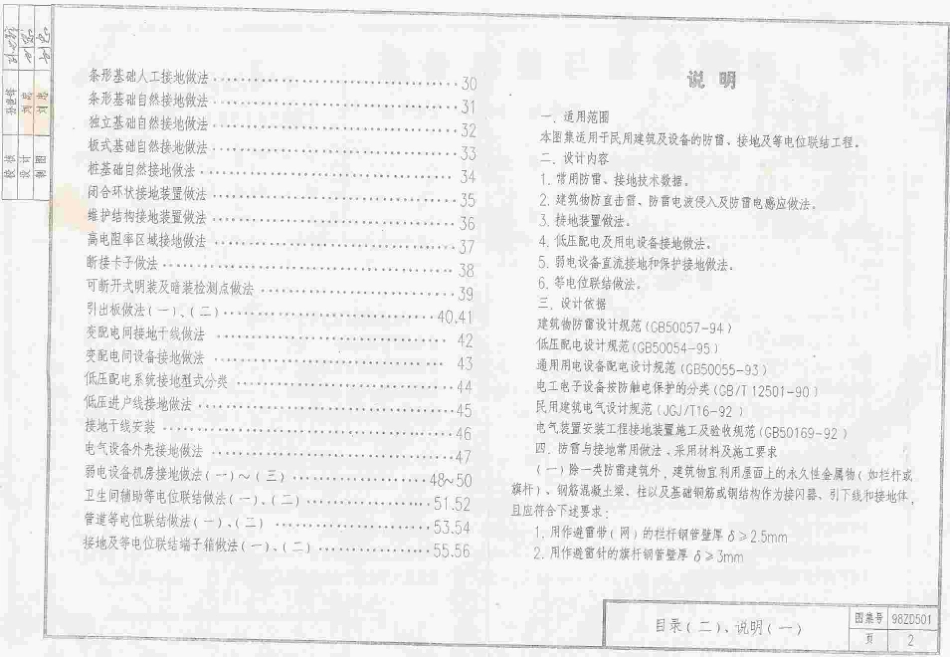 校核
设计
制图
条形基础人工接地做法 30
条形基础自然接地做法 31
独立基础自然接地做法 32
板式基础自然接地做法 33
桩基础自然接地做法 34
闭合环状接地装置做法 35
维护结构接地装置做法 36
高电阻率区域接地做法 37
断接卡子做法 38
可断开式明装及暗装检测点做法 39
引出板做法(一)、(二) 40,41
变配电间接地干线做法 42
变配电间设备接地做法 43
低压配电系统接地型式分类 44
低压进户线接地做法 45
接地干线安装 46
电气设备外壳接地做法 47
弱电设备机房接地做法(一)～(三) 48~50
卫生间辅助等电位联结做法(一)、(二) 51.52
管道等电位联结做法(一)、(二) 53.54
接地及等电位联结端子箱做法(一)、(二) 55.56
说 明
一. 适用范围
本图集适用于民用建筑及设备的防雷、接地及等电位联结工程。
二. 设计内容
1. 常用防雷、接地技术数据。
2. 建筑物防直击雷、防雷电波侵入及防雷电感应做法。
3. 接地装置做法。
4. 低压配电及用电设备接地做法。
5. 弱电设备直流接地和保护接地做法。
6. 等电位联结做法。
三. 设计依据
建筑物防雷设计规范(GB50057-94)
低压配电设计规范(GB50054-95)
通用用电设备配电设计规范(GB50055-93)
电工电子设备按防触电保护的分类(GB/T 12501-90)
民用建筑电气设计规范(JGJ/T16-92)
电气装置安装工程接地装置施工及验收规范(GB50169-92)
四. 防雷与接地常用做法、采用材料及施工要求
(一)除一类防雷建筑外，建筑物宜利用屋面上的永久性金属物(如栏杆或
旗杆)、钢筋混凝土梁、柱以及基础钢筋或钢结构作为接闪器、引下线和接地体，
且应符合下述要求：
1. 用作避雷带(网)的栏杆钢管壁厚 δ≥2.5mm
2. 用作避雷针的旗杆钢管壁厚 δ≥3mm
目录(二)、说明(一)
图集号 98ZD501
页 2